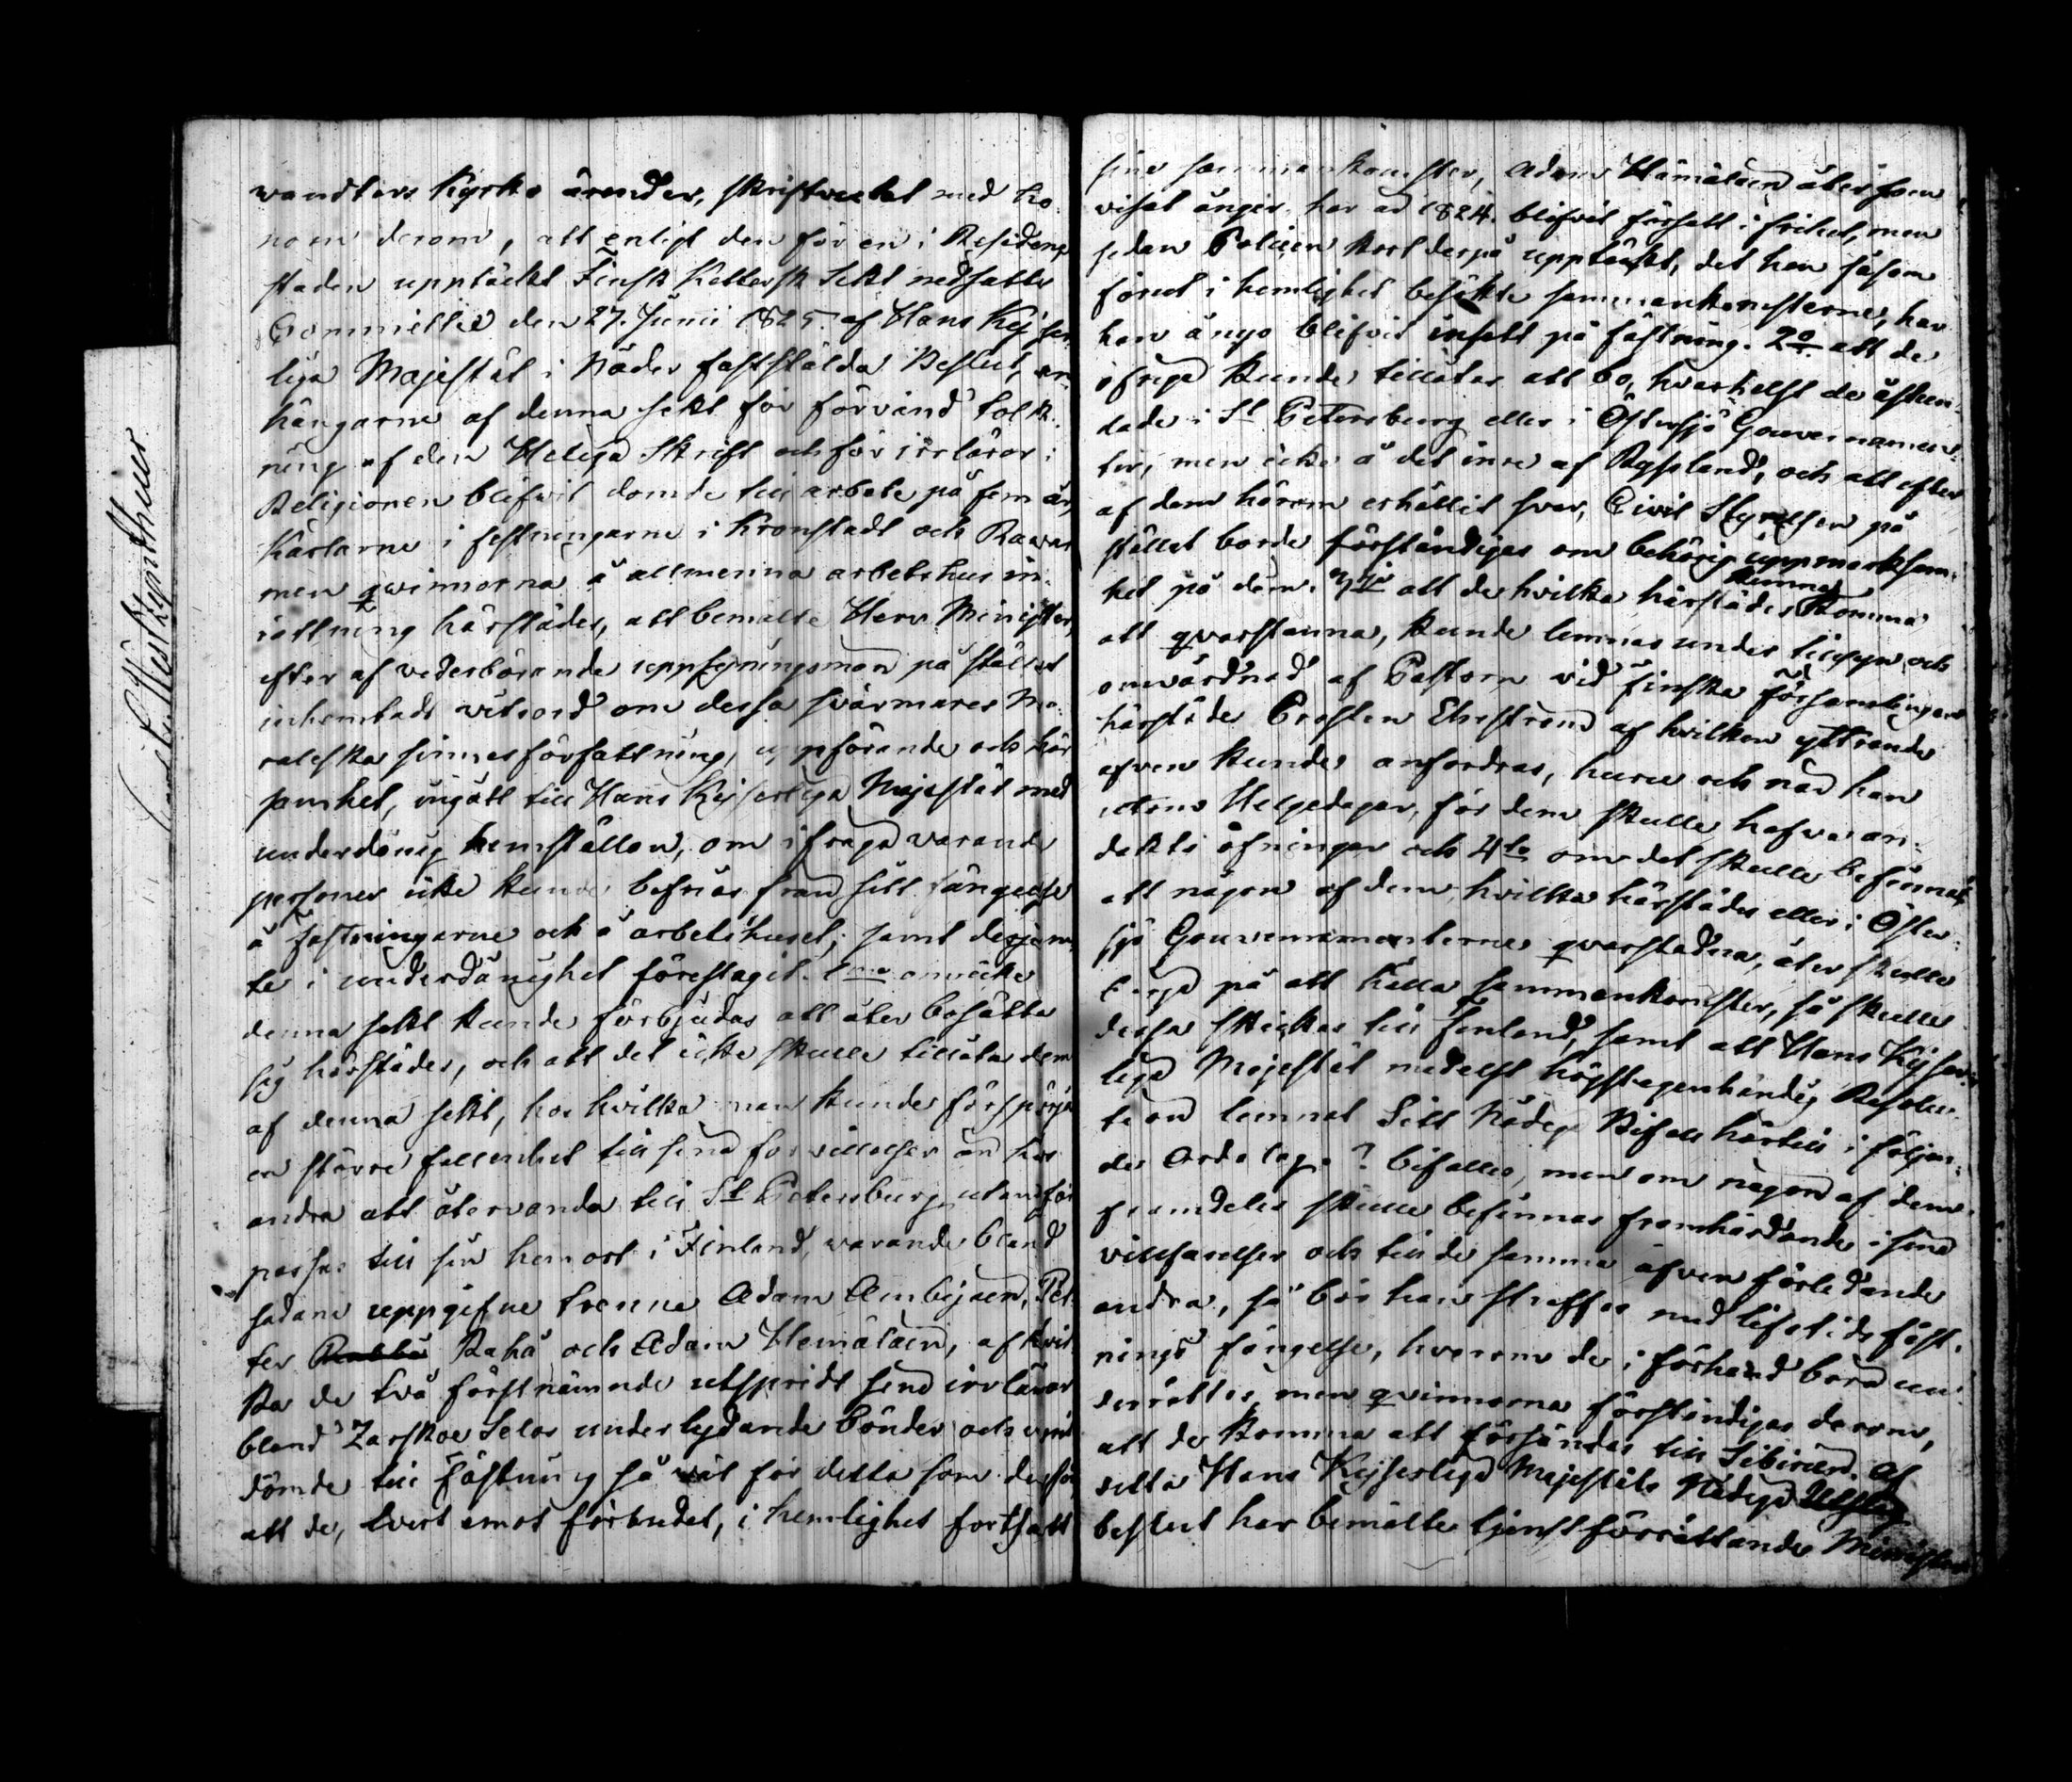 wandters Kyrko ärender, skriftvexlat med ho-
nom derom, att enligt den för en i Residens
staden upptäckt Finsk Kettersk Sekt nedsatte
Committée den 27. Junii 1825. af Hans Kejser-
liga Majestät i Nåder faststälda Beslut, an-
hängarne af denna sekt för förvänd tolk-
ning af den Heliga Skrift och för irrläror i
Religionen blifvit dömde till arbete på fem år,
Karlarne i festningarne i Kronstadt och
men qwinnorna å allmenna arbetshus in-
rättning härstädes, att bemälte Herr Minister,
efter af vederbörande uppsyningsmän på stället
inhemtadt vitsord om dessa svärmares mo-
raleska sinnesförfattning, uppförande och hör
samhet, ingått till Hans Kejserliga Majestät med
underdånig hemställan, om ifråga varande
personer icke kunde befrias från sitt fängelse
å fastningarne och å arbetshuset; samt derjem-
te i underdånighet föreslagit. 1mo om icke
denna sekt kunde förbjudas att åter bosätta
sig härstädes, och att det icke skulle tillåtas dem
af denna sekt, hos hvilka man kunde försporja
en större fallenhet till sina forvillelser än hos
andra att återvanda till St Petersburg, utan för
passas till sin hemort i Finland, warande bland
sadane uppgifne trenne Adam Ambijaen, Pet-
ter Raha och Adam Hemalain, af hvil
ka de två förstnämnde utspridt sina irrläror
bland Zarskoe Selos underlydande bönder och
dömde till Fästning så väl för detta som derför
att de, tvert emot förbudet, i hemlighet fortsatt
sine sammankomster, Adam Hämäläin åter som
visat ånger har ad 1824. blifvit försatt i frihet, men
sedan Policen kort derpå upptäckt, det han såsom
förut i hemlighet besökte sammankomsterne, har
han ånyo blifvit insatt på fästning. 2o att de
öfriga kunde tillåtas att bo, hvarhelst de åstun-
dade i St Petersburg eller i Östersjö Gouvernemen-
ter, men icke å det inre af Ryssland, och att efter
af dem härom erhållit svar, Civil Styrelsen på
stället borde förständigas om behörig uppmärksam-
het på dem. 3tio att de hvilka härstädes komma
att qvarstanna, kunde lemnas under tillsyn och
omvårdnad af Pastorn vid Finska församlingen
härstädes Prosten Ehrström af hvilken yttrande
afven kunde anfordras, huru och når han
Helgedagar, för dem skulle hafva an-
dakts öfningar och 4to om det skulle befinnas
att någon af dem, hvilka härstädes eller i Öster-
sjö Gouvernementerne qvarstadna, åter skulle
på att hålla sammankomster, så skulle
dessa skickas till Finland, samt att Hans Kejser-
liga Majestät medelst högstegenhändig Resolu-
tion lemnat Sitt Nådiga Bifall härtill i följan-
de Ordalag.? bifalles, men om någon af dem
framdeles skulle befinnas framhärdande i sina
villfarelser och till de samma äfven förledande
andra, så bör han straffas med lifstids fäst-
nings fängelse, hvarom de i förhand böra un-
derrättas, men qvinnorna förständigas derom,
att de komma att försändas till Sibirien. Af
detta Hans Kejserliga Majestäts Nådiga Utslag
beslut har bemälte tjenstförrättande Ministern